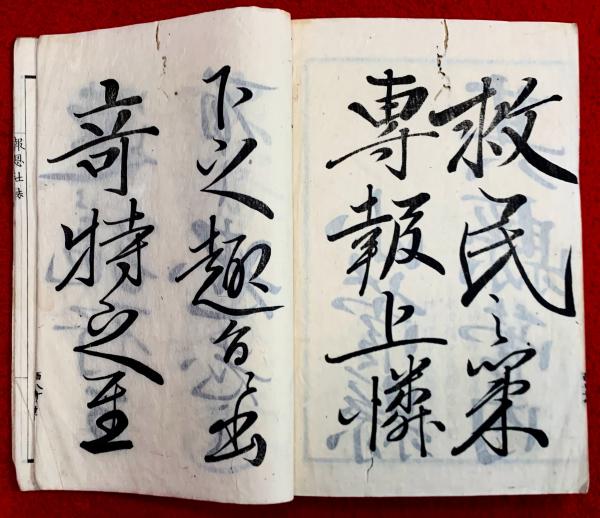 救民之策
專報上憐
下之趣旨
竒特之至
報恩社誌